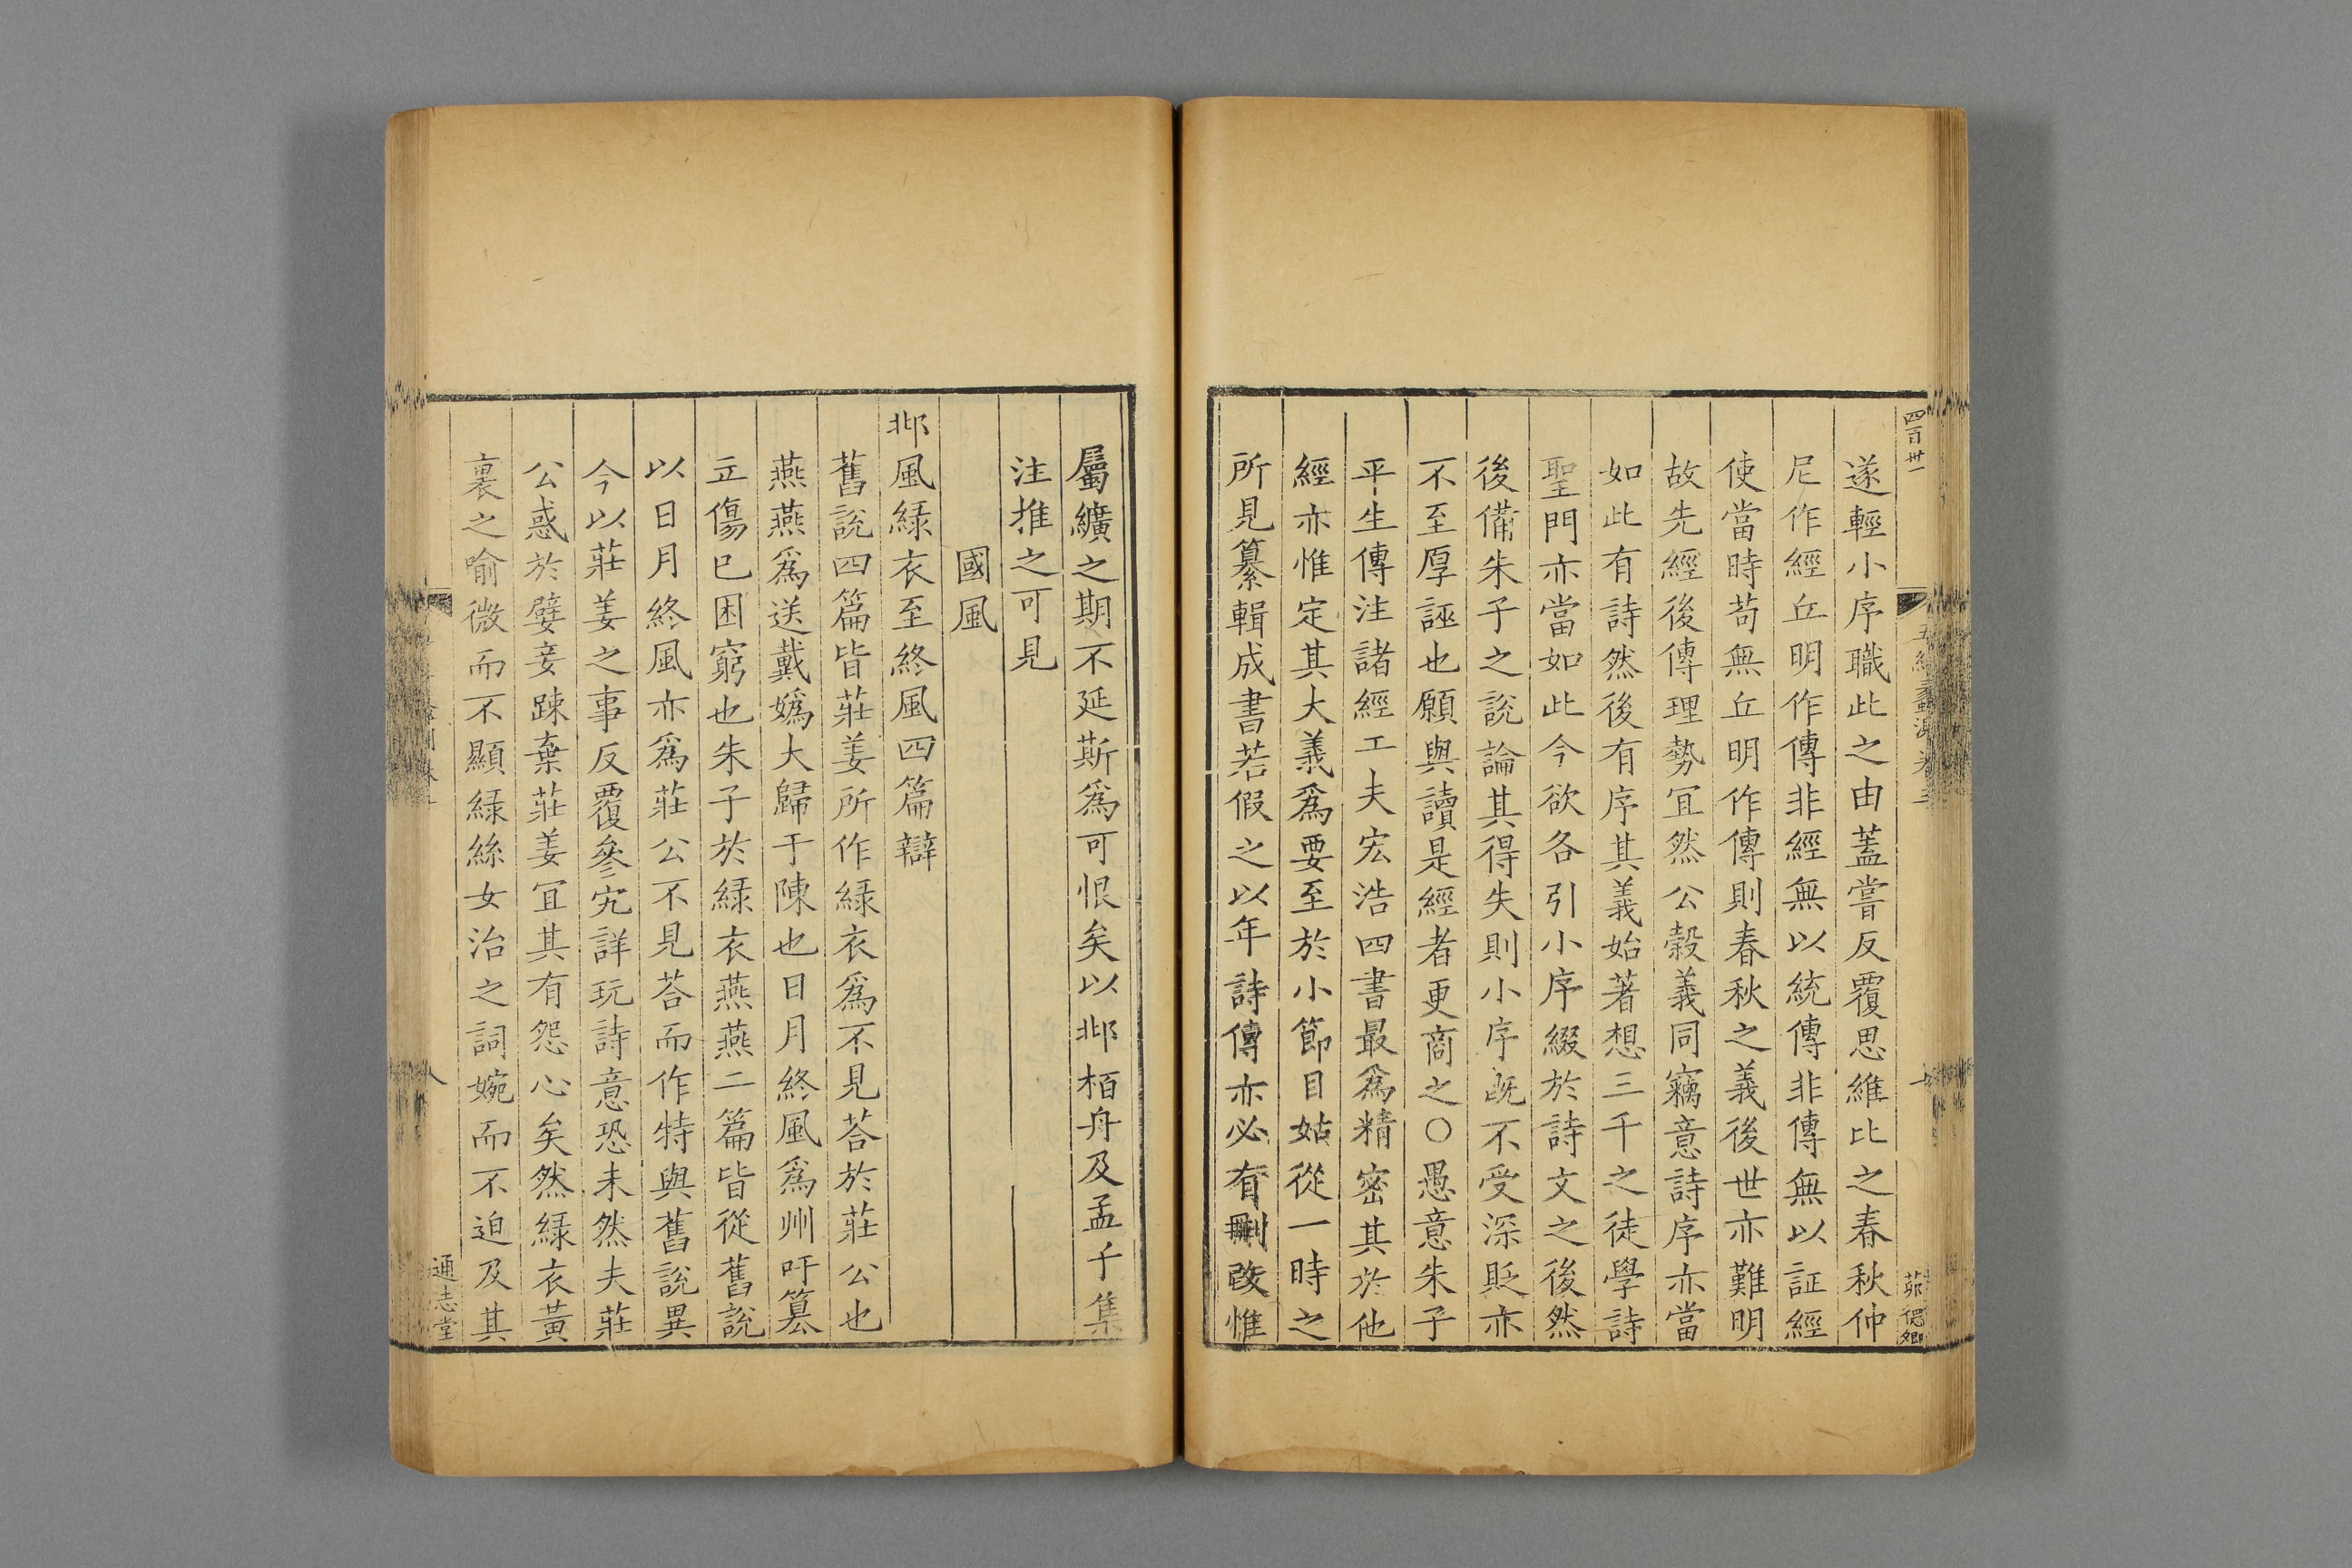 四百卅一
遂輕小序職此之由蓋嘗反覆思維比之春秋仲
尼作經丘明作傳非經無以統傳非傳無以証經
使當時茍無丘明作傳則春秋之義後世亦難明
故先經後傳理勢冝然公穀義同竊意詩序亦當
如此有詩然後有序其義始著想三千之徒學詩
聖門亦當如此今欲各引小序綴於詩文之後然
後備朱子之說論其得失則小序既不受深貶亦
不至厚誣也願與讀是經者更商之○愚意朱子
平生傳注諸經工夫宏浩四書最爲精密其於他
經亦惟定其大義爲要至於小節目姑從一時之
所見纂輯成書若假之以年詩傳亦必有刪改惟
屬纊之期不延斯爲可恨矣以邶栢舟及孟子集
注推之可見
國風
邶風緑衣至終風四篇辯
舊說四篇皆莊姜所作緑衣爲不見荅於莊公也
燕燕爲送戴嬀大歸于陳也日月終風爲州吁篡
立傷已困窮也朱子於緑衣燕燕二篇皆從舊說
以日月終風亦爲莊公不見荅而作特與舊說異
今以莊姜之事反覆叅究詳玩詩意恐未然夫莊
公惑於嬖妾踈棄莊姜冝其有怨心矣然緑衣黃
裏之喻微而不顯緑絲女治之詞婉而不迫及其
八
通志堂